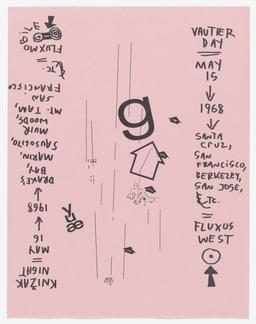 VAUTIER
DAY
=
MAY
15
1968
SANTA
CRUZ,
SAN
FRANCISCO,
BERKELEY,
SAN JOSE,
ETC.
=
FLUXUS
WEST
g
KNIŽAK
NIGHT
=
MAY
16
1968
DRAKE'S
BAY,
MARIN,
SAUSOLITO,
MUIR
WOODS,
MT. TAM,
SAN
FRANCISCO
ETC.
=
FLUXMO